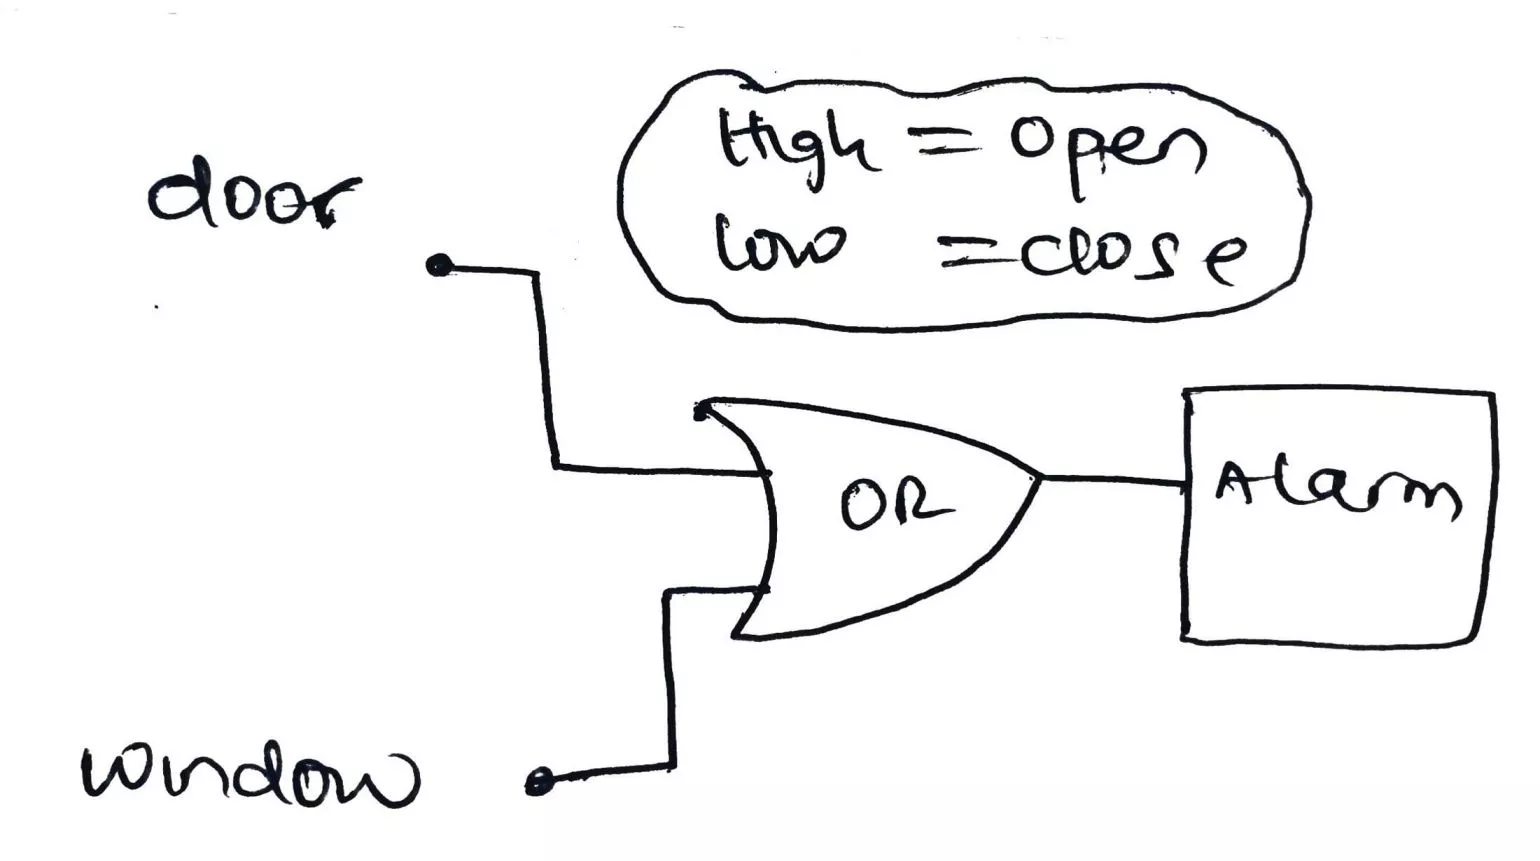 High = Open
Low = close
door
OR
Alarm
window